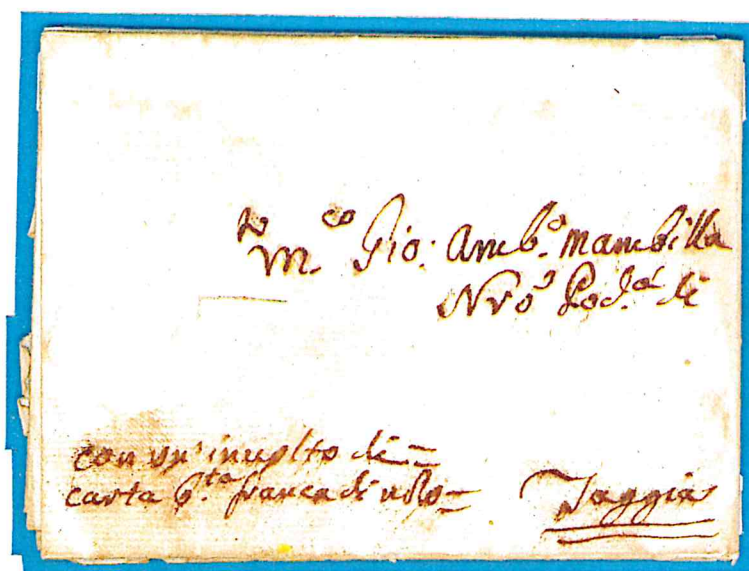 M.co Gio: Amb.o Mambilla
Nro Pod.a di
con un' inuolto di =
carta franca di nolo =
Taggia